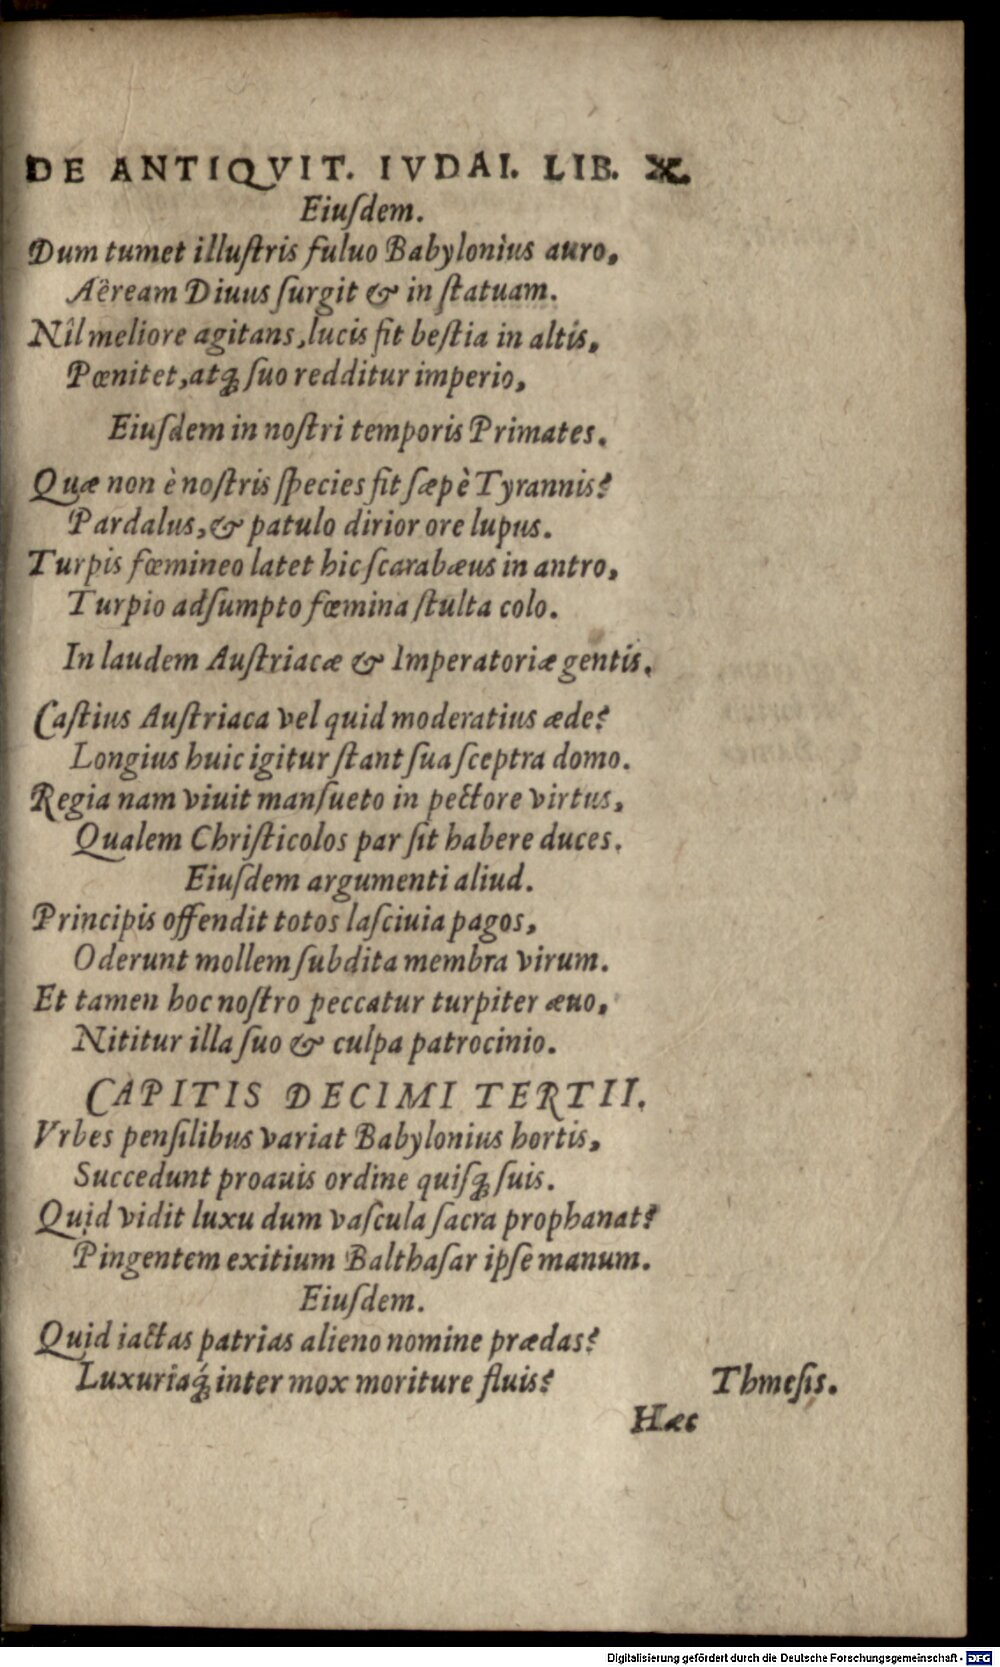 DE ANTIQVIT. IVDAI. LIB. X.
Eiuſdem.
Dum tumet illuſtris fuluo Babylonius auro,
Aëream Diuus ſurgit & in ſtatuam.
Nil meliore agitans, lucis fit beſtia in altis,
Pœnitet, atq́ꝫ ſuo redditur imperio,
Eiuſdem in noſtri temporis Primates.
Quæ non è noſtris ſpecies fit ſæpè Tyrannis?
Pardalus, & patulo dirior ore lupus.
Turpis fœmineo latet hic ſcarabæus in antro,
Turpio adſumpto fœmina ſtulta colo.
In laudem Auſtriacæ & Imperatoriæ gentis.
Caſtius Auſtriaca vel quid moderatius æde?
Longius huic igitur ſtant ſua ſceptra domo.
Regia nam viuit manſueto in pectore virtus,
Qualem Chriſticolos par ſit habere duces.
Eiuſdem argumenti aliud.
Principis offendit totos laſciuia pagos,
Oderunt mollem ſubdita membra virum.
Et tamen hoc noſtro peccatur turpiter æuo,
Nititur illa ſuo & culpa patrocinio.
CAPITIS DECIMI TERTII.
Vrbes penſilibus variat Babylonius hortis,
Succedunt proauis ordine quiſqꝫ ſuis.
Quid vidit luxu dum vaſcula ſacra prophanat?
Pingentem exitium Balthaſar ipſe manum.
Eiuſdem.
Quid iactas patrias alieno nomine prædas?
Luxuriaq́ꝫ inter mox moriture fluis? Thmeſis.
Hæc
Digitalisierung gefördert durch die Deutsche Forschungsgemeinschaft - DFG